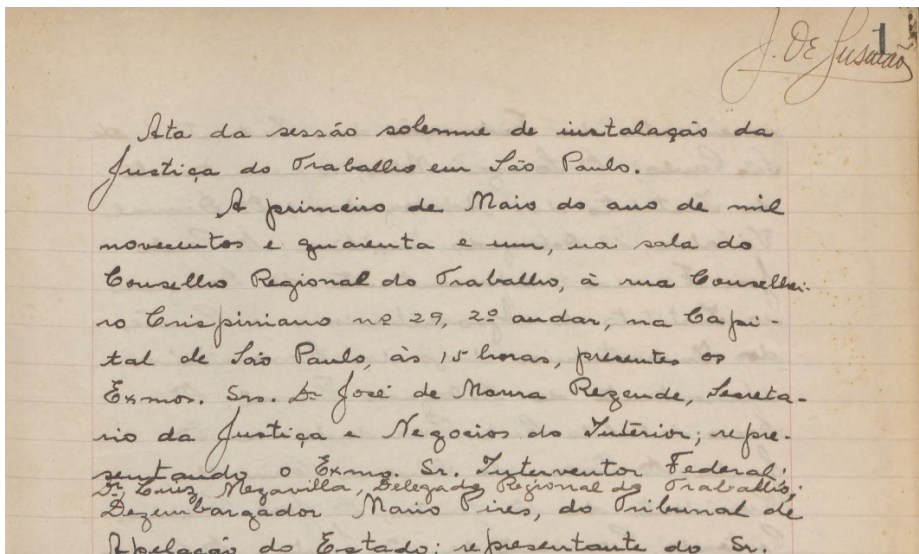 1
J. DE
Ata da sessão solemne de instalação da
Justiça do Trabalho em São Paulo.
A primeiro de Maio do ano de mil
novecentos e quarenta e um, na sala do
Conselho Regional do Trabalho, à rua Conselhei-
ro Crispiniano nº 29, 2º andar, na Capi-
tal de São Paulo, às 15 horas, presentes os
Exmos. Srs. Dr José de Moura Rezende, Secreta-
rio da Justiça e Negocios do Interior; repre-
sentando o Exmo. Sr. Interventor Federal;
Dr. Luiz Mezavilla, Delegado Regional do Trabalho;
Dezembargador Mario Pires, do Tribunal de
Apelação do Estado; representante do Sr.